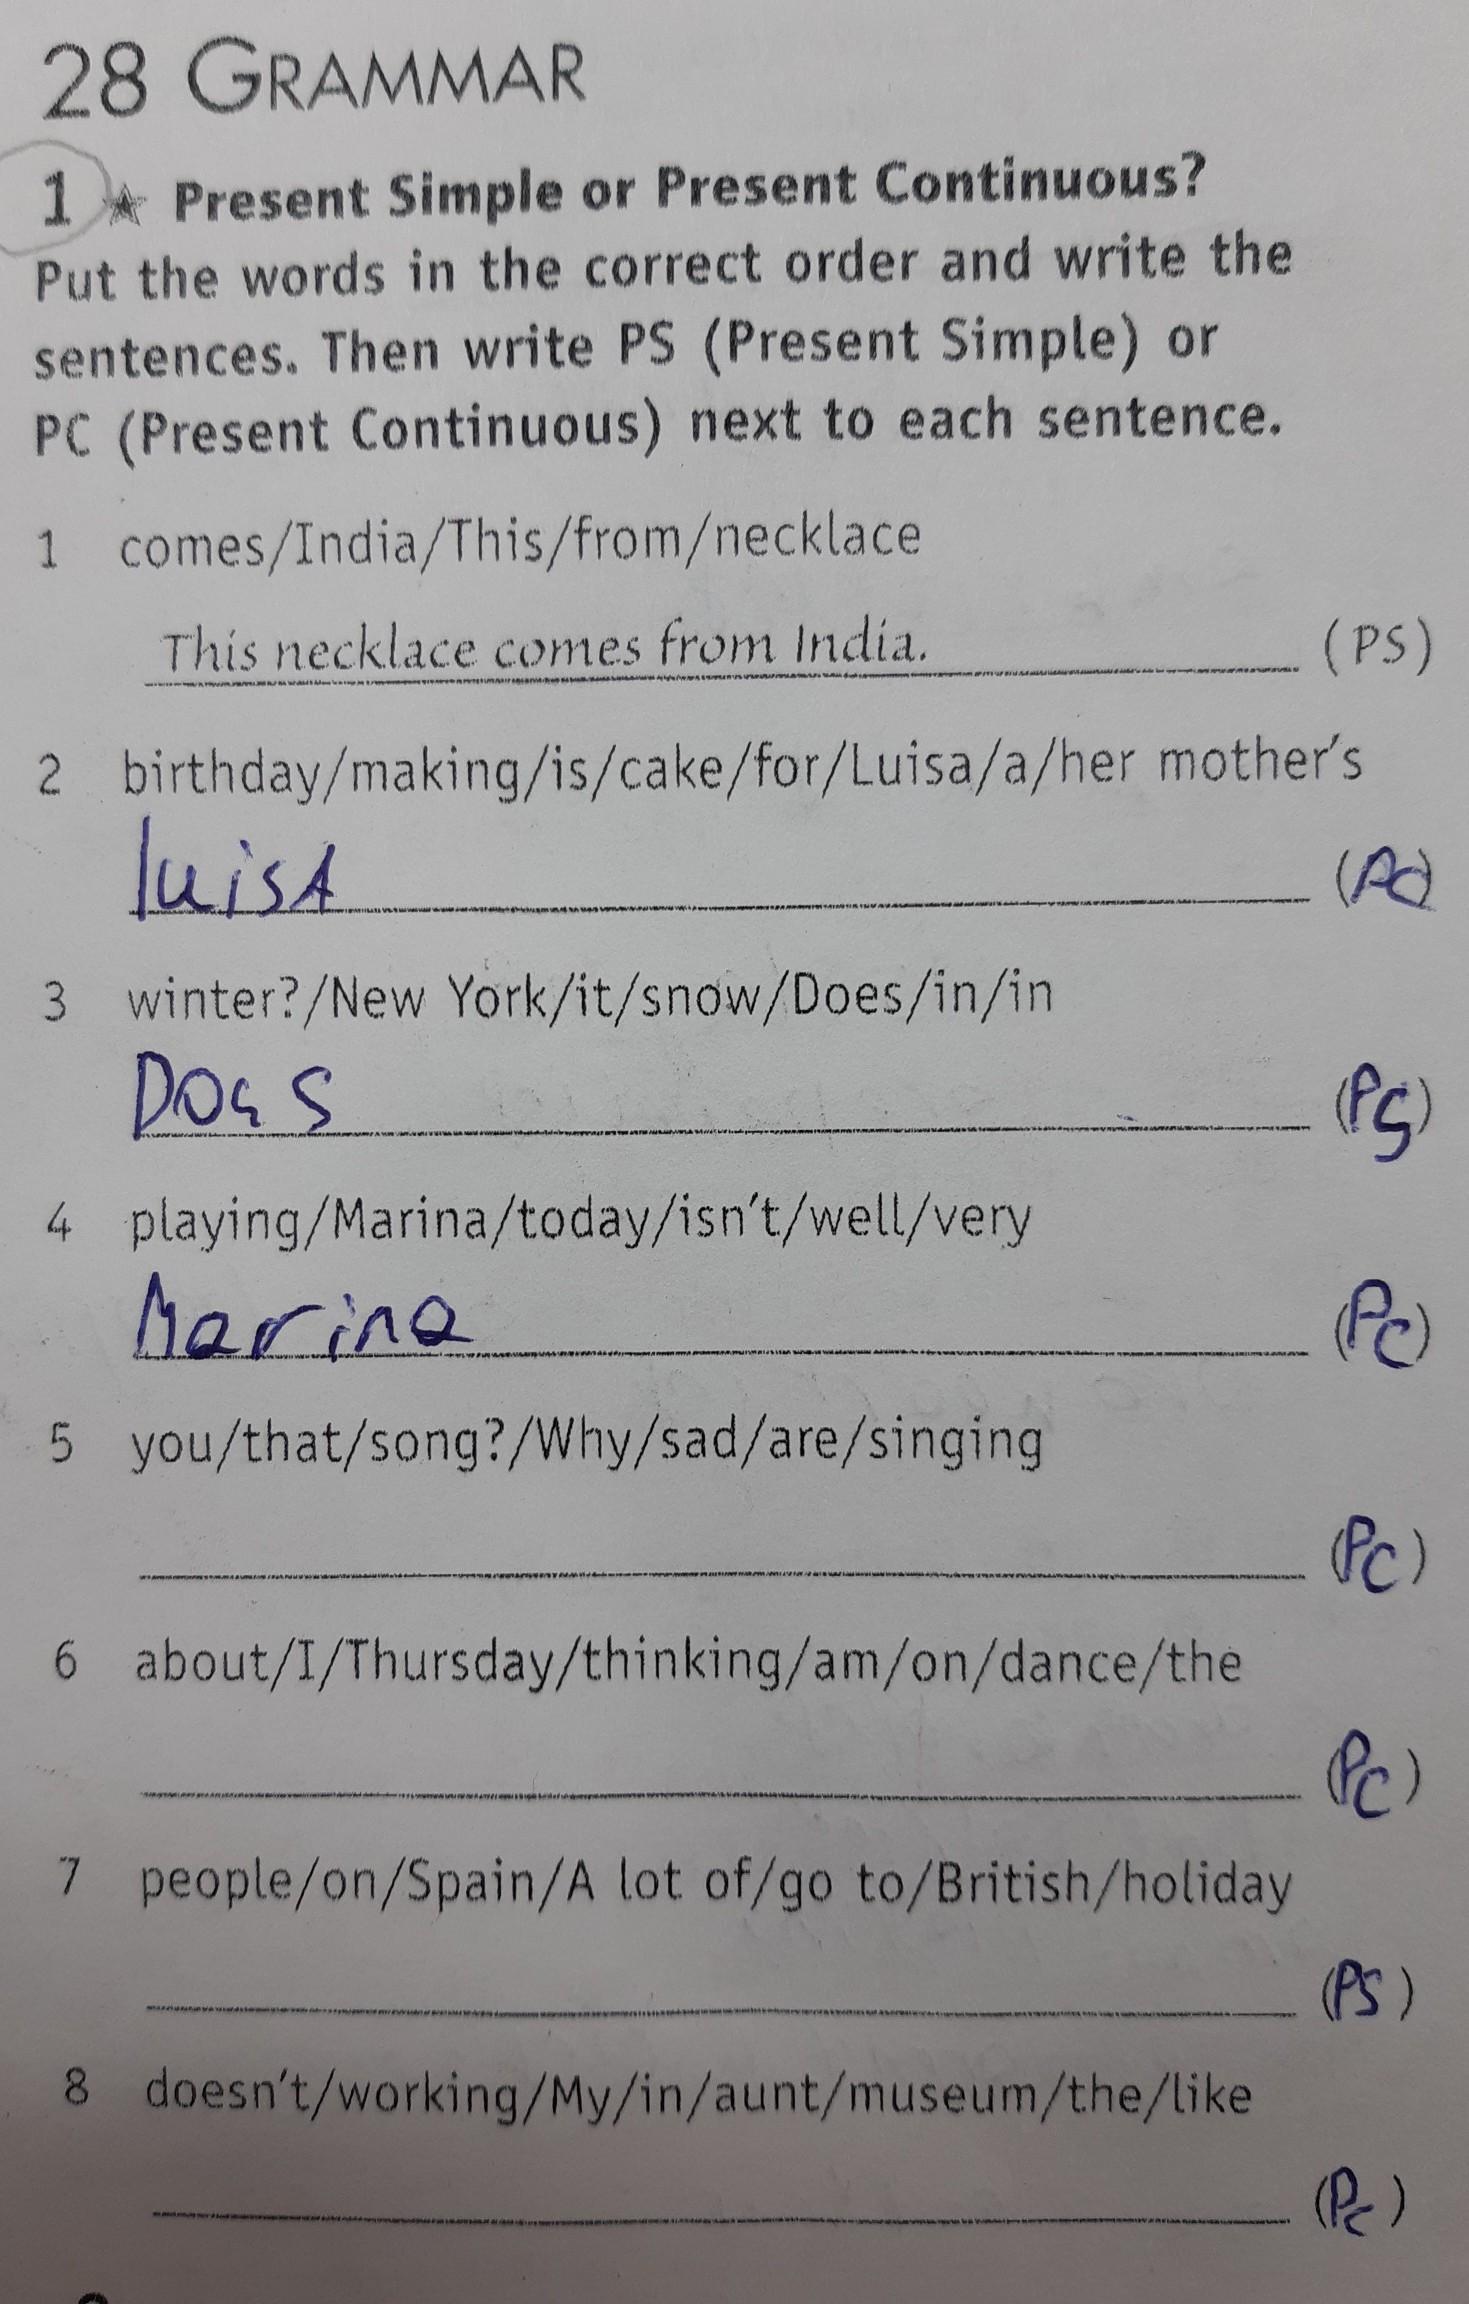 28 GRAMMAR
1 ★ Present Simple or Present Continuous?
Put the words in the correct order and write the
sentences. Then write PS (Present Simple) or
PC (Present Continuous) next to each sentence.
1 comes/India/This/from/necklace
This necklace comes from India. (PS)
2 birthday/making/is/cake/for/Luisa/a/her mother's
luisA (PC)
3 winter?/New York/it/snow/Does/in/in
Does (PS)
4 playing/Marina/today/isn't/well/very
Marina (PC)
5 you/that/song?/Why/sad/are/singing
(PC)
6 about/I/Thursday/thinking/am/on/dance/the
(PC)
7 people/on/Spain/A lot of/go to/British/holiday
(PS)
8 doesn't/working/My/in/aunt/museum/the/like
(PC)